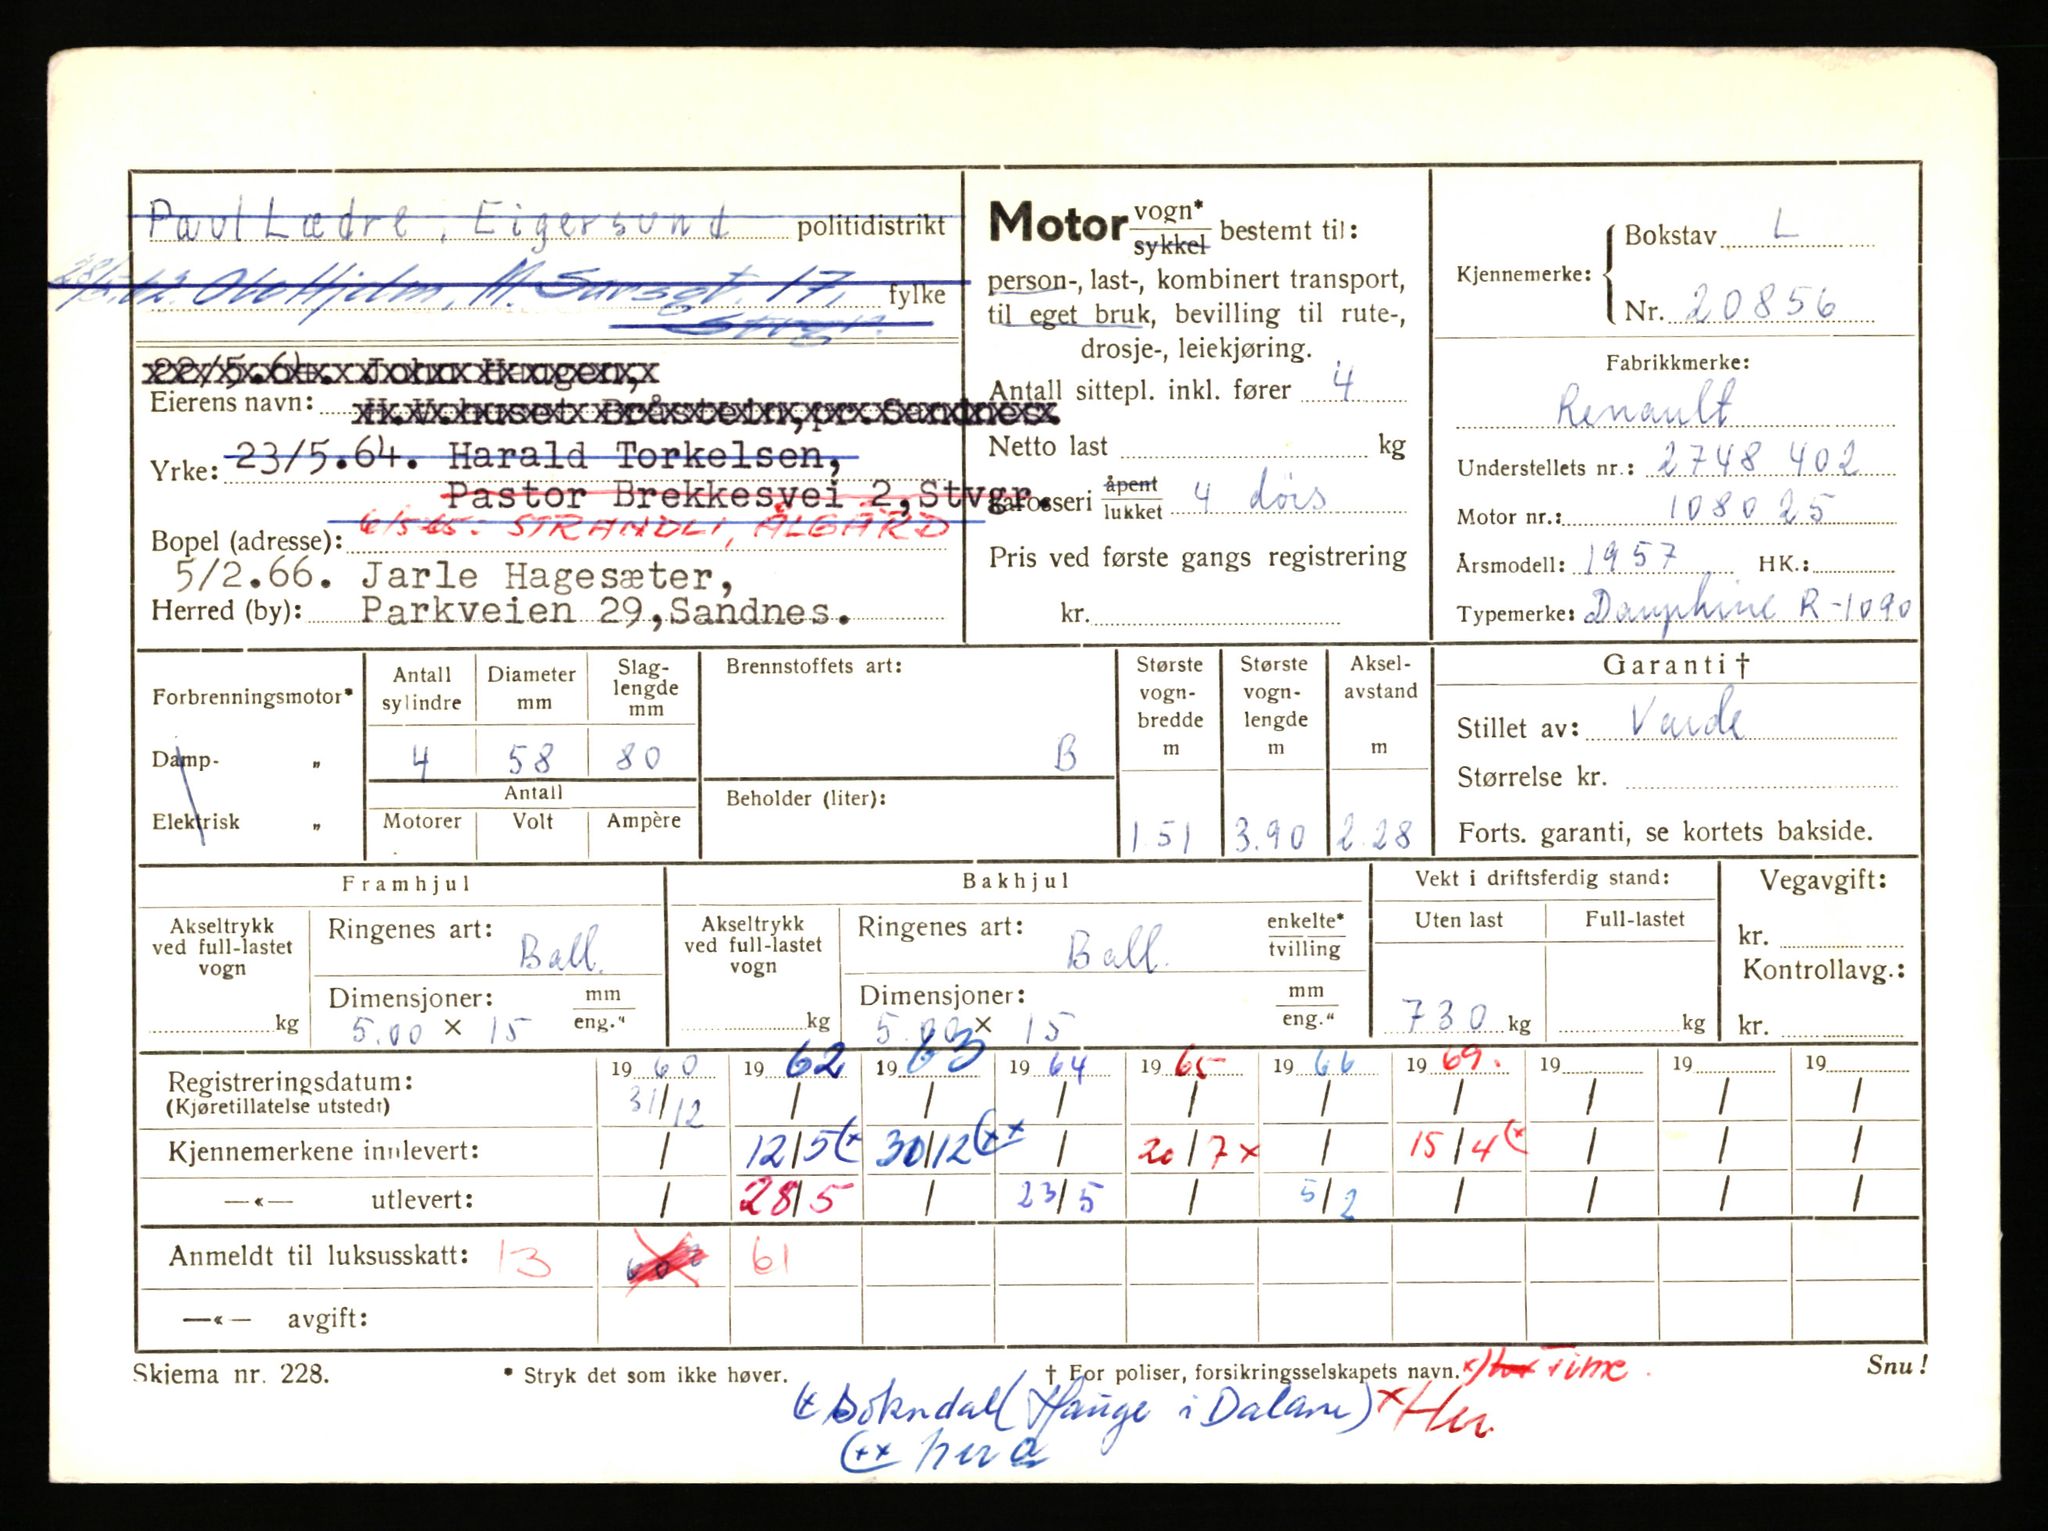 Paul Lædre, Eigersund politidistrikt
28/5.62. Ole Hjelm, M. 17, fylke
Stvgr.
22/5.64. John Haugen,
Eierens navn: H.V.huset Bråstein, pr. Sandnes.
Yrke: 23/5.64. Harald Torkelsen,
Pastor Brekkesvei 2, Stvgr.
Bopel (adresse): 6/5-65. STRANDLI, ÅLGÅRD
5/2.66. Jarle Hagesæter,
Herred (by): Parkveien 29, Sandnes.
Motor vogn* sykkel bestemt til:
person-, last-, kombinert transport,
til eget bruk, bevilling til rute-,
drosje-, leiekjøring.
Antall sittepl. inkl. fører 4
Netto last kg
Karosseri åpent lukket 4 dørs
Pris ved første gangs registrering
kr.
Kjennemerke: Bokstav L
Nr. 20856
Fabrikkmerke:
Renault
Understellets nr.: 2748 402
Motor nr.: 108025
Årsmodell: 1957 HK.:
Typemerke: Dauphine R-1090
Forbrenningsmotor*
Damp- „
Elektrisk „
Antall sylindre Diameter mm Slag-lengde mm
4 58 80
Antall
Motorer Volt Ampère
Brennstoffets art:
B
Beholder (liter):
Største vogn-bredde m Største vogn-lengde m Aksel-avstand m
1.51 3.90 2.28
Garanti †
Stillet av: Varde
Størrelse kr.
Forts. garanti, se kortets bakside.
Framhjul
Akseltrykk ved full-lastet vogn
kg
Ringenes art: Ball.
Dimensjoner: mm eng."
5.00 × 15
Bakhjul
Akseltrykk ved full-lastet vogn
kg
Ringenes art: Ball. enkelte* tvilling
Dimensjoner: mm eng."
5.00 × 15
Vekt i driftsferdig stand:
Uten last Full-lastet
730 kg kg
Vegavgift:
kr.
Kontrollavg.:
kr.
19 60 19 62 19 63 19 64 19 65 19 66 19 69. 19 19 19
Registreringsdatum: 31/12 / / / / / / / / /
(Kjøretillatelse utstedt)
Kjennemerkene innlevert: / 12/5 (x 30/12 (xx / 20/7 x / 15/4 (x / / /
—«— utlevert: / 28/5 / 23/5 / 5/2 / / / /
Anmeldt til luksusskatt: 13 61
—«— avgift:
Skjema nr. 228. * Stryk det som ikke høver. † For poliser, forsikringsselskapets navn. x) Time. Snu!
(x Sokndal (Hauge i Dalane) x Her.
(xx her